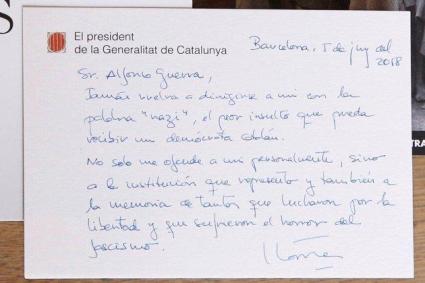 S
El president
de la Generalitat de Catalunya
Barcelona, 5 de juny del
2018
Sr. Alfonso Guerra,
Jamás vuelva a dirigirse a mí con la
palabra "nazi", el peor insulto que pueda
recibir un demócrata catalán.
No solo me ofende a mí personalmente, sino
a la institución que represento y también a
la memoria de tantos que lucharon por la
libertad y que sufrieron el horror del
fascismo.
TRA